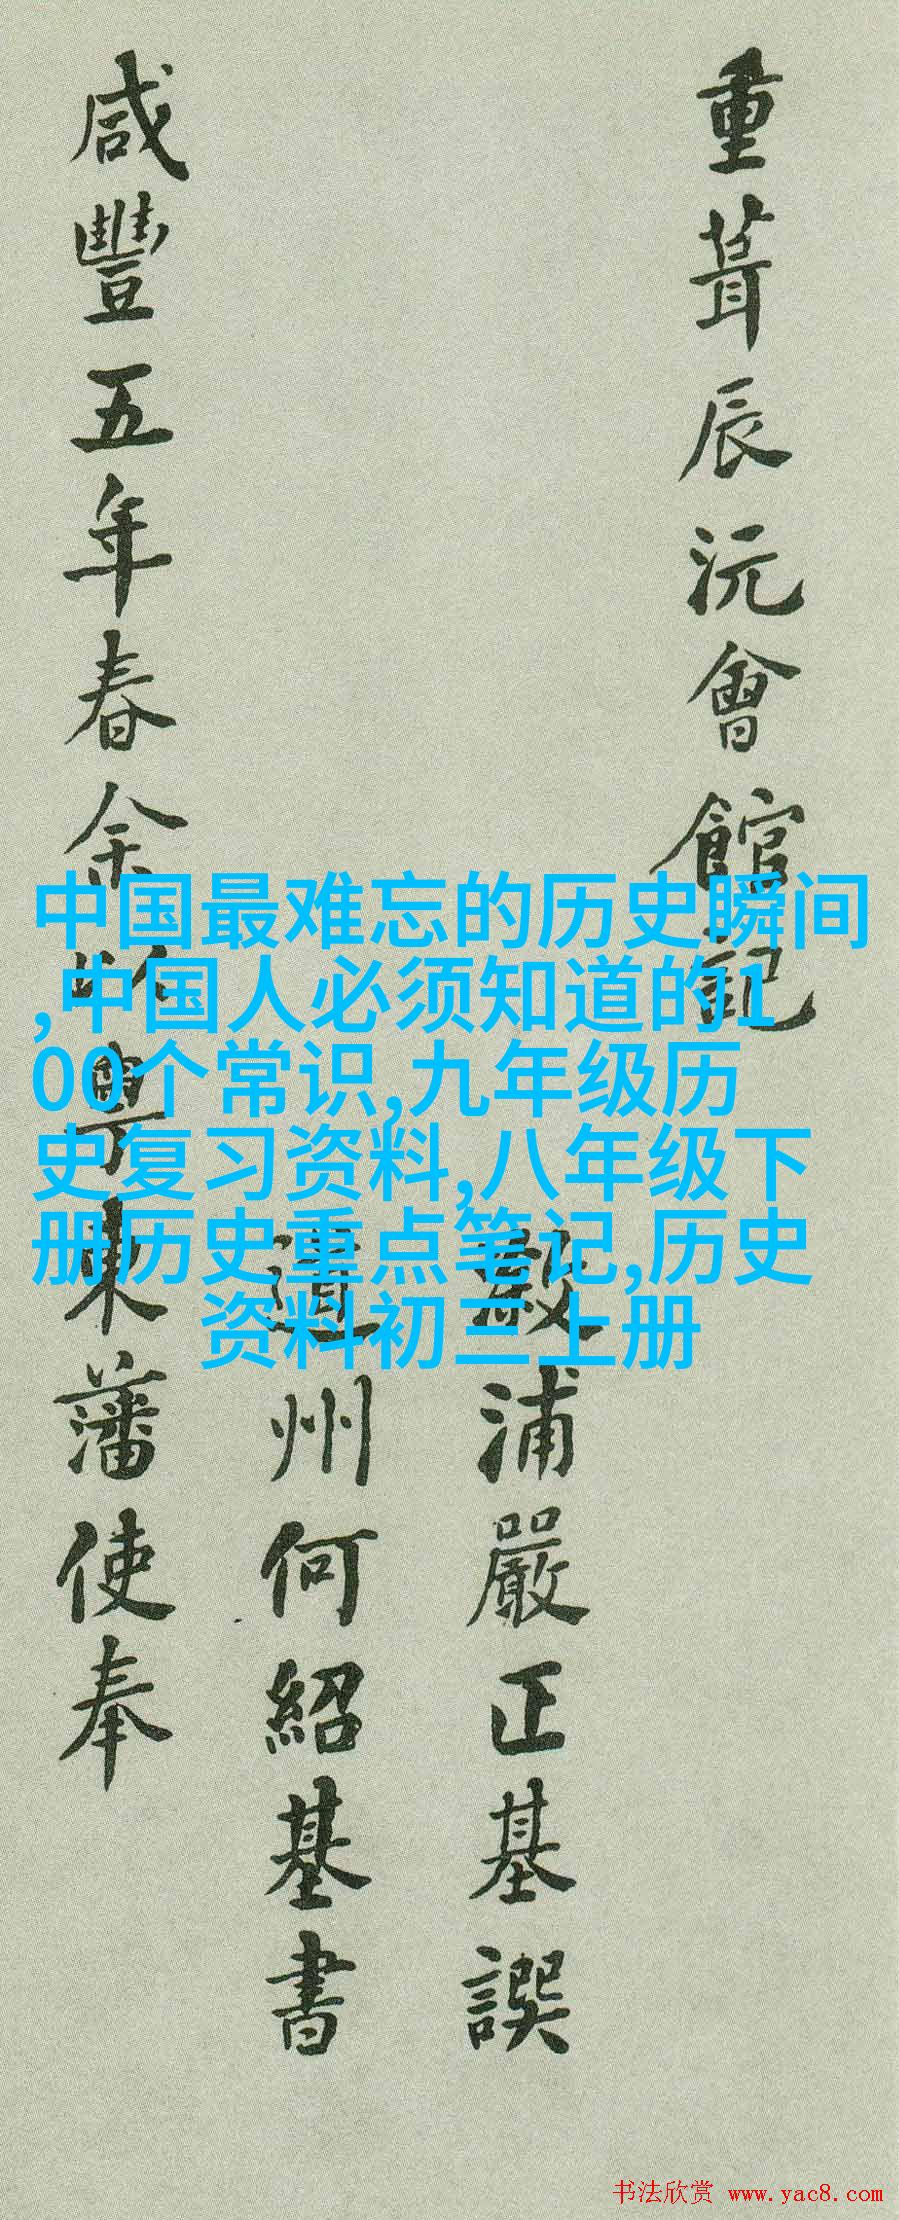 重葺辰沅會館記
漵浦嚴正基譔
道州何紹基書
咸豐五年春余以粵東藩使奉
中国最难忘的历史瞬间
,中国人必须知道的1
00个常识,九年级历
史复习资料,八年级下
册历史重点笔记,历史
资料初三上册
书法欣赏 www.yac8.com